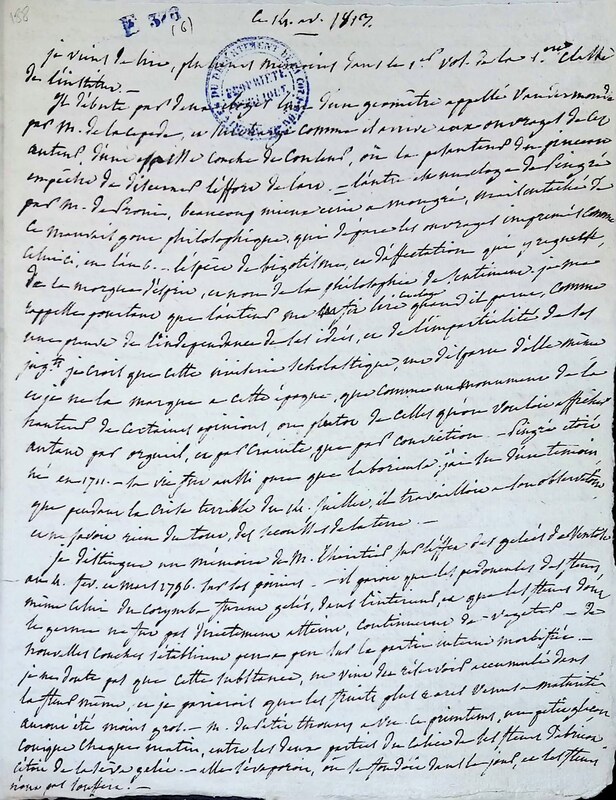 158
E 378
(6)
ce 14. av. 1813.
je viens de lire, plusieurs mémoires dans le 1er vol. de la 1ere Classe
de l'institut. —
Il débute par deux éloges, l'un d'un géomètre appellé Vandermonde
par M. de la Cepede, et comme il arrive aux ouvrages de cet
auteur, d'une couche de couleur, où la pesanteur du pinceau
empêche de discerner l'effort de l'art. — l'autre est un éloge de Pingré
par M. de Prony, beaucoup mieux écrit a mon gré, mais entaché de
ce mauvais gout philosophique, qui dépare les ouvrages imprimés comme
celui ci, en l'an 6. — l'espèce de bigotisme, et d'affectation que y
de la morgue d'esprit, et non de la philosophie de sentiment. je me
rappelle pourtant que l'auteur me fit lire cet éloge quand il parut, comme
une preuve de l'indépendance de ses idées, et de l'impartialité de ses
jugts je crois que cette scholastique, ne dispare d'elle même
et je ne la marque a cette époque, que comme un monument de la
hauteur de certaines opinions, ou plutot de celles qu'on vouloit afficher
autant par orgueil, et par crainte que par conviction. — Pingré etoit
né en 1711. — sa vie fut aussi pure que laborieuse, j'ai su d'un temoin
que pendant la crise terrible du 14. juillet, il travailloit a son observatoire
et ne savoit rien du tout, des secousses de la terre. —
je distingue un mémoire de M. sur l'effet des gelées de Ventose
an 4. fev. et mars 1796. sur les poiriers. — il paroit que les pédoncules des fleurs
même celui du corymbe furent gelés, dans l'intérieur, et que les fleurs dont
le germe ne fut pas directement atteint, continuerent de végéter — de
nouvelles couches s'établirent peu a peu sur la partie interne morbifiée. —
je ne doute pas que cette substance, ne vint des réservoirs accumulés dans
la fleur même, et je penserois que les fruits plus tard venus a maturité
auront été moins gros. — M. du petit thouars a vu ce printems, un petit glacon
conique chaque matin, entre les deux parties du calice de ses fleurs d'abricot
c'etoit de la sève gelée. — elle s'évaporoit, ou se fondoit dans le jour, et les fleurs
n'ont pas souffert. —